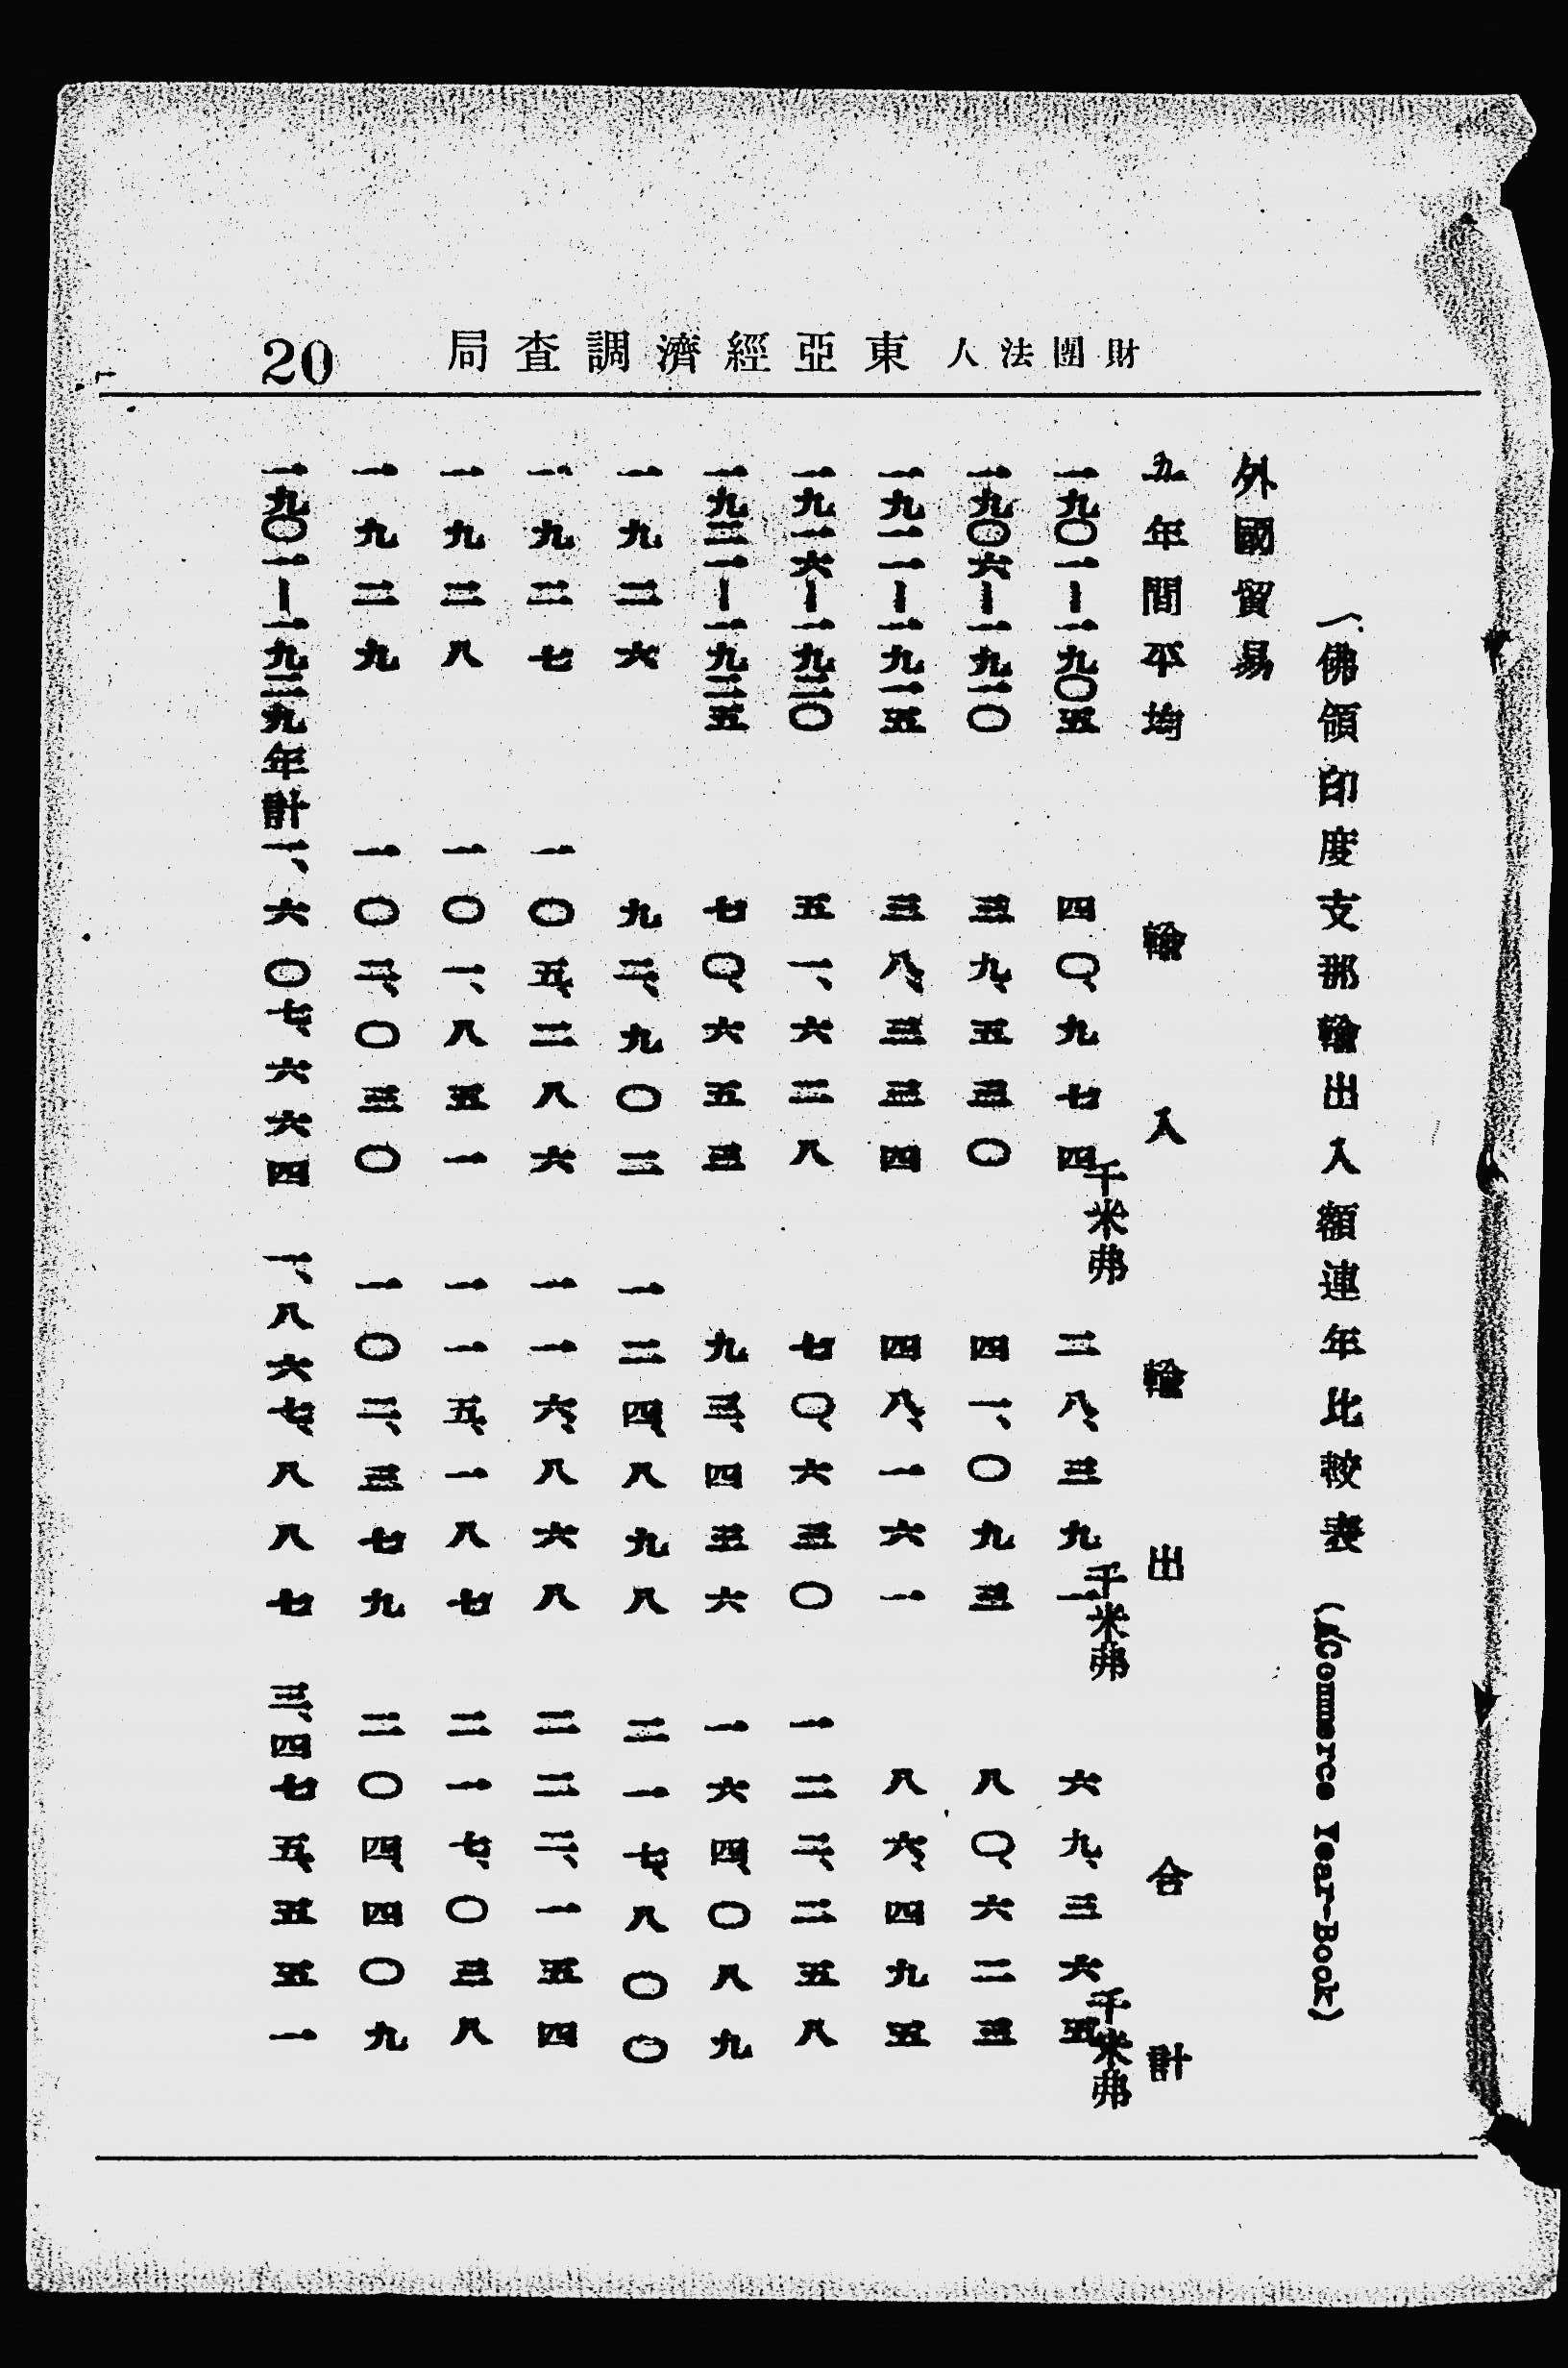 財團法人東亞經濟調查局 20
一、佛領印度支那輸出入額連年比較表 (Commerce Year-Book)
外國貿易
五年間平均 輸入 輸出 合計
一九〇一—一九〇五 四〇、九七四千米弗 二八、三九一千米弗 六九、三六五千米弗
一九〇六—一九一〇 三九、五三〇 四一、〇九三 八〇、六二三
一九一一—一九一五 三八、三三四 四八、一六一 八六、四九五
一九一六—一九二〇 五一、六二八 七〇、六三〇 一二二、二五八
一九二一—一九二五 七〇、六五三 九三、四五六 一六四、〇八九
一九二六 九二、九〇二 一二四、八九八 二一七、八〇〇
一九二七 一〇五、二八六 一一六、八六八 二二二、一五四
一九二八 一〇一、八五一 一一五、一八七 二一七、〇三八
一九二九 一〇二、〇三〇 一〇二、三七九 二〇四、四〇九
一九〇一—一九二九年計 一、六〇七、六六四 一、八六七、八八七 三、四七五、五五一